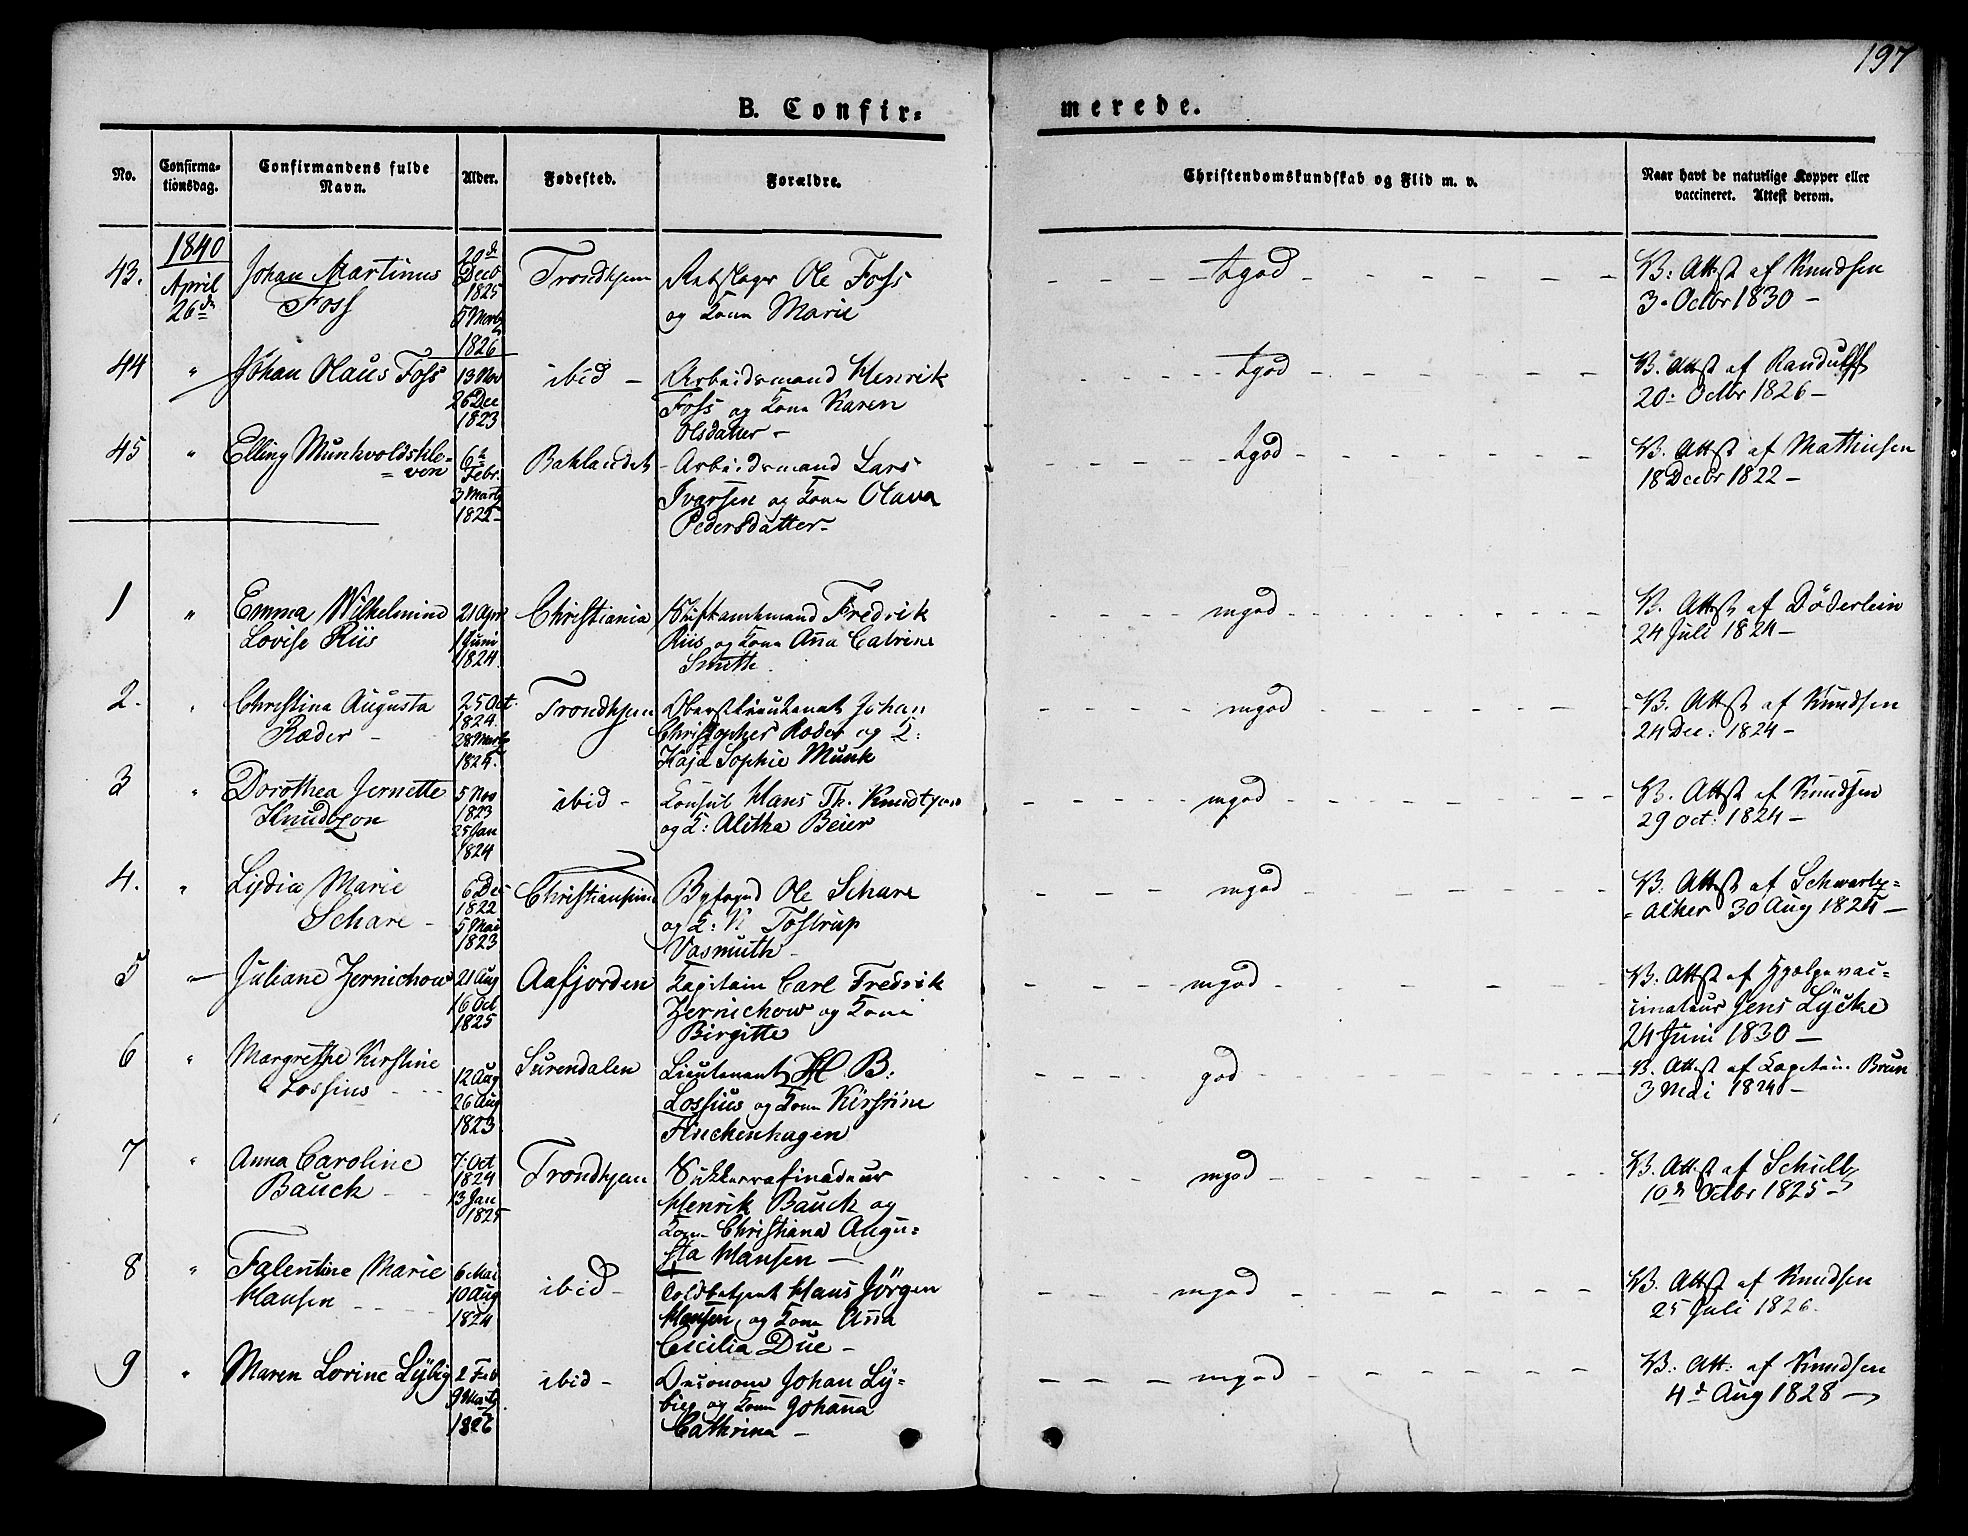 197
B. Confir=
merede.
No.
Confirma-
tionsdag.
Confirmandens fulde
Navn.
Alder.
Fødested.
Forældre.
Christendomskundskab og Flid m. v.
Naar havt de naturlige Kopper eller
vaccineret. Attest derom.
1840
43. April 26de Johan Martinus
Foss
20de
Decb
1825
5 Martz
1826
Trondhjem
Rebslager Ole Foss
og Kone Marie
tgod
V: Attst af Knudsen
3. Octbr 1830 –
44 " Johan Olaus Foss
13 Nov
26 Dec
1823
ibid –
Arbeidsmand Henrik
Foss og Kone Karen
Olsdatter –
tgod
V. Attst af Randulff
20: Octbr 1826 –
45 " Elling Munkvoldskle=
=ven
6te
Febr.
3 Martz
1822
Baklandet
Arbeidsmand Lars
Ivarsen og Kone Olava
Pedersdatter –
tgod
V. Attst af Mathiesen
18 Decbr 1822 –
1 " Emma Wilhelmine
Lovise Riis
21 Apr
1 Juni
1824
Christiania
Stiftamtmand Fredrik
Riis og Kone Ana Catrine
Smith
mgod
V. Attst af Døderlein
24 Juli 1824 –
2. " Christine Augusta
Ræder –
25 Oct.
1824.
28 Martz
1825.
Trondhjem
Oberstlieutenat Johan
Christopher Ræder og K:
Kaja Sophie Munk
mgod
V. Attst af Knudsen
24 Dec: 1824 –
3 " Dorothea Jernette
Knudtzon
5 Nov
1823
25 Jan
1824
ibid –
Konsul Hans Th. Knudtzon
og K: Aletha Beier
mgod
V. Attst af Knudsen
29 Oct: 1824 –
4. " Lydia Marie
Schare –
6 Dec
1822
5 Mai
1823
Christiansund
Byfoged Ole Schare
og K: N. Tostrup
Vasmuth –
mgod
V: Attst af Schwartz=
=acher 30 Aug 1824 –
5 " Juliane Zernichow
21 Aug
16 Oct
1825
Aafjorden
Kapitain Carl Fredrik
Zernichow og Kone
Birgitte
mgod
V: Attst af Hjælpevac=
cinateur Jens Lÿcke
24 Juni 1830 –
6 " Margrethe Kirstine
Lossius
12 Aug
26 Aug
1823
Surendalen
Lieutenant H. B:
Lossius og Kone Kirstine
Finchenhagen
god
V. Attst af Kapitain Brun
3 Mai 1824 –
7 " Anna Caroline
Bauck
7. Oct
1824
13 Jan
1825
Trondhjem
Sukkerrafinadeur
Henrik Bauck og
Kone Christiana Augu=
sta Hansen –
mgod
V. Attst af Schultz
10de Octbr 1825 –
8 " Falentine Marie
Hansen
6 Mai
10 Aug
1824
ibid –
Toldbetjent Hans Jörgen
Hansen og Kone Ana
Cicilia Due –
mgod
V. Attst af Knudsen
25 Juli 1826.
9 " Maren Lovine Lÿbig
2 Feb
9 Martz
1826
ibid –
Oeconom Johan Ly=
bieg og Kone Johana
Cathrina –
mgod
V. Att: af Knudsen
4de Aug 1828 –